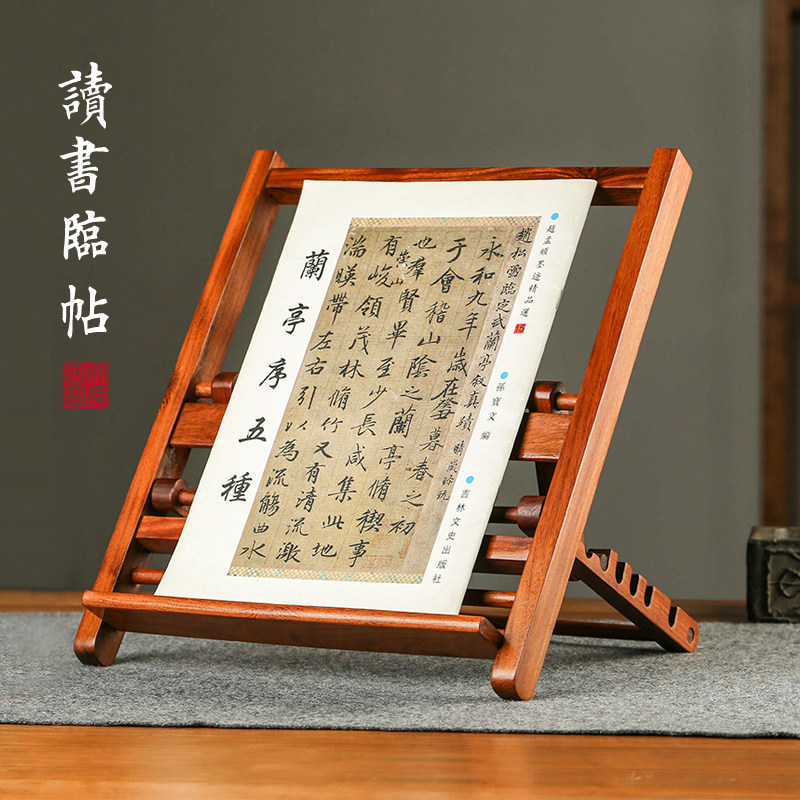 讀書臨帖
趙孟頫墨迹精品選
15
孫寶文 編
吉林文史出版社
趙松雪臨定武蘭亭叙真蹟
永和九年歲在癸丑暮春之初
于會稽山陰之蘭亭脩稧事
也羣賢畢至少長咸集此地
有崇山峻領茂林脩竹又有清流激
湍暎帶左右引以為流觴曲水
蘭亭序五種